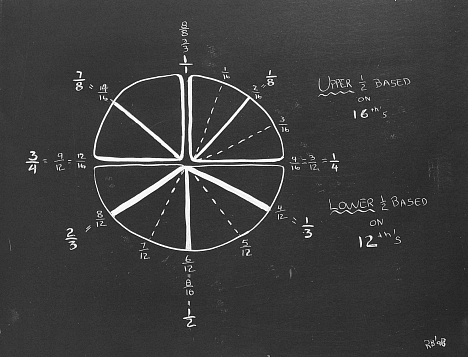 8/8
3/3
1/1
7/8 = 14/16
1/16
2/16 = 1/8
UPPER 1/2 BASED
ON
16th's
3/16
3/4 = 9/12 = 12/16
4/16 = 3/12 = 1/4
LOWER 1/2 BASED
ON
12th's
2/3 = 8/12
4/12 = 1/3
7/12
5/12
6/12
=
8/16
=
1/2